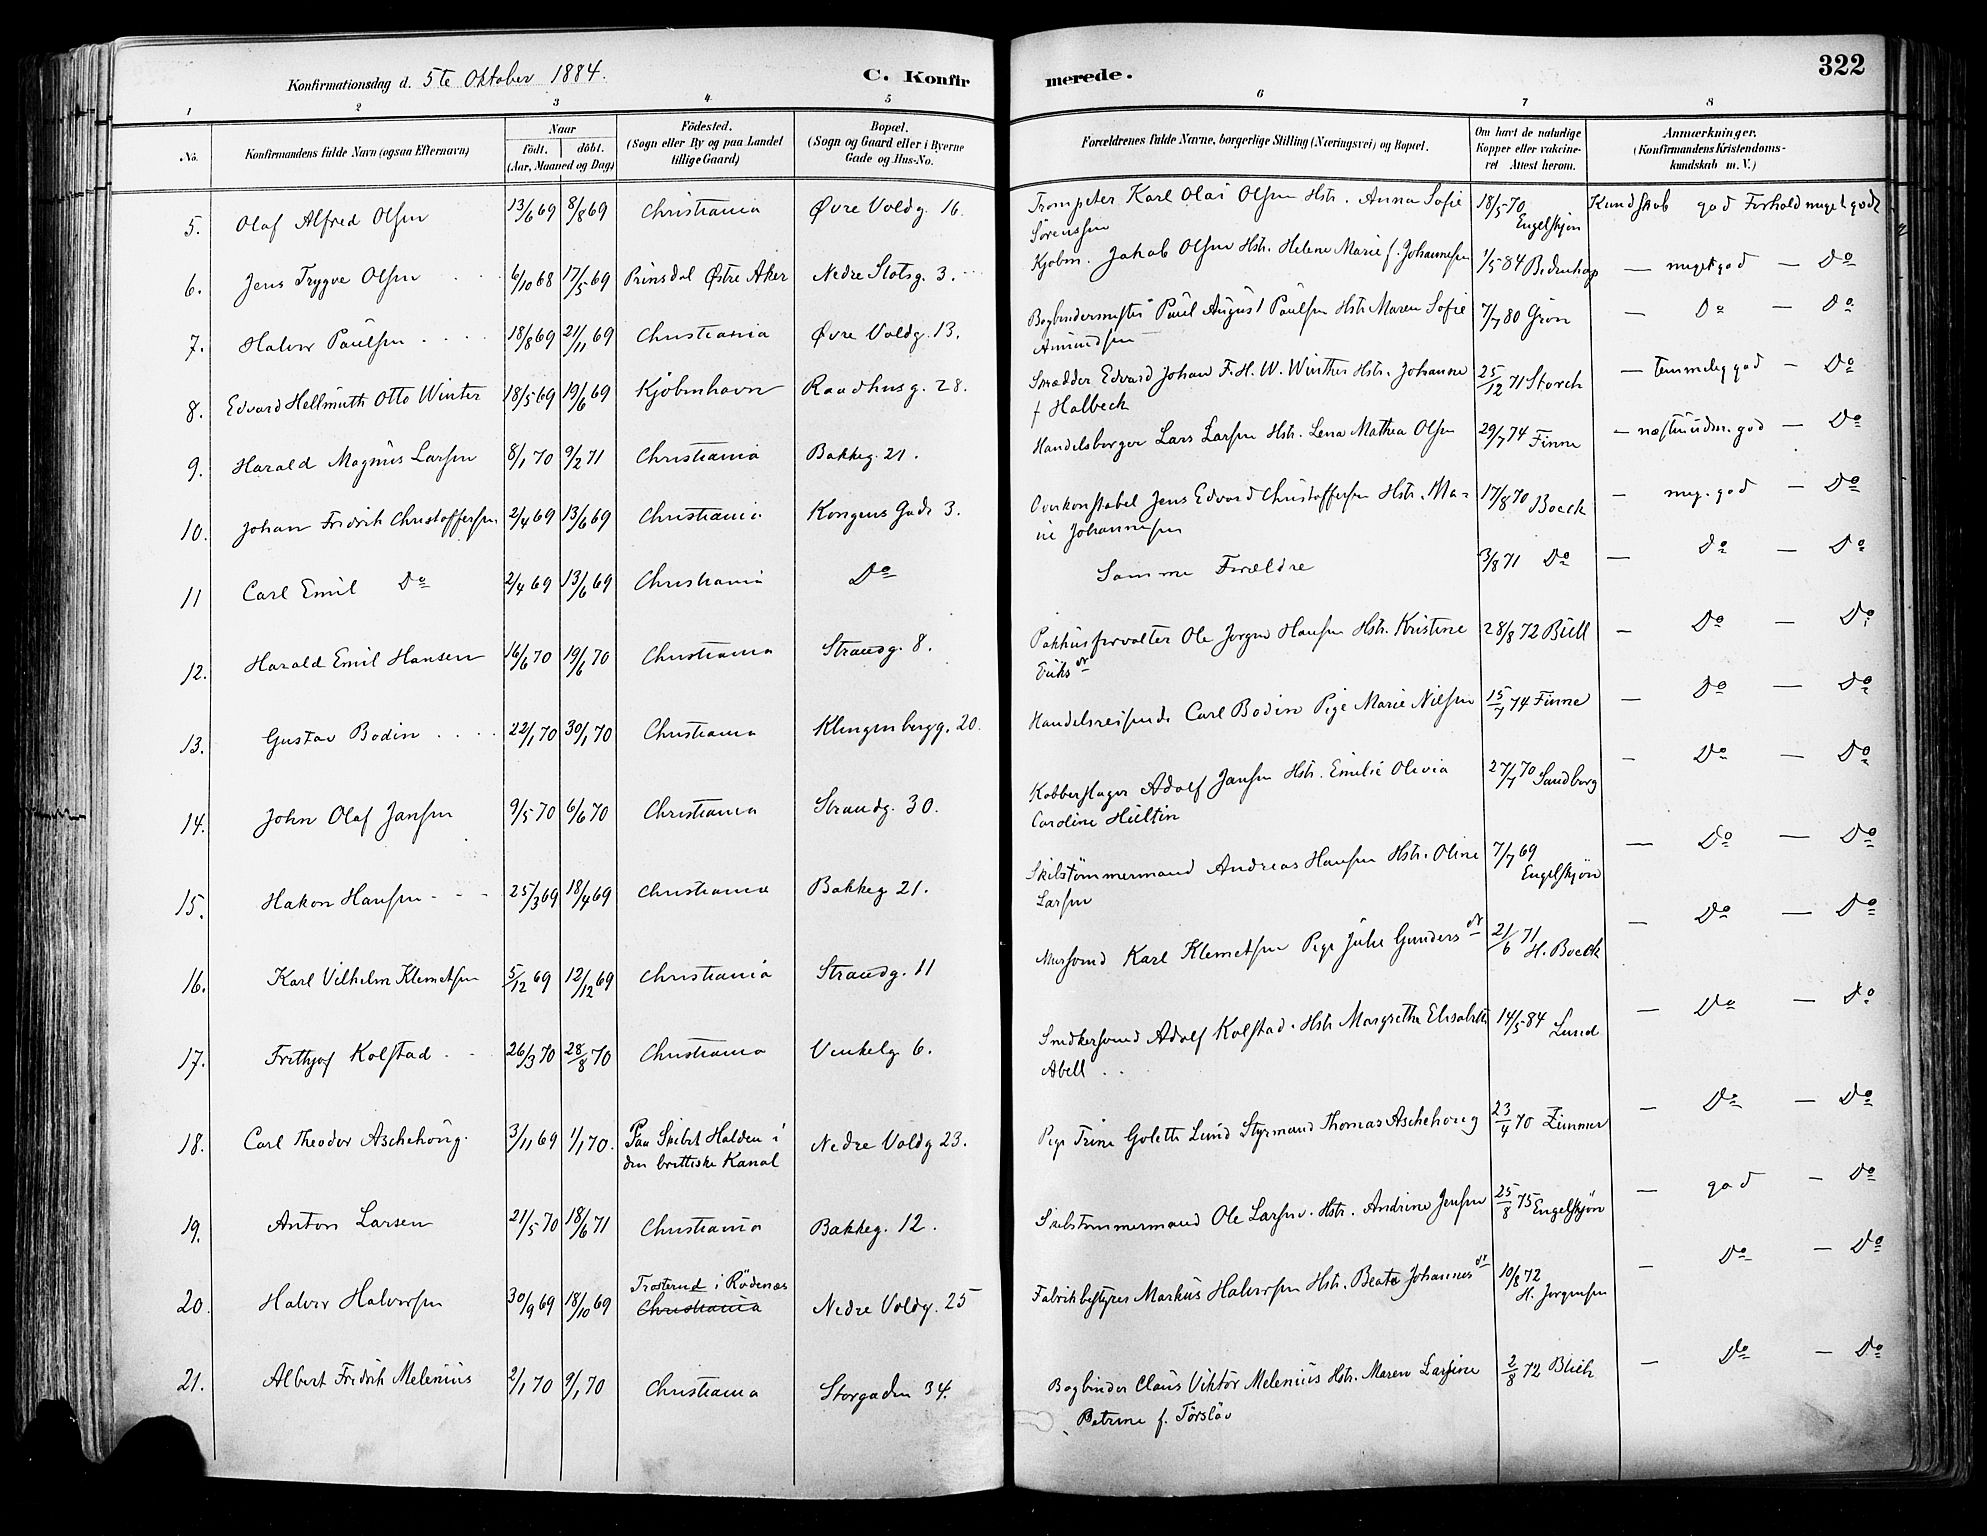 Konfirmationsdag d. 5te Oktober 1884.
C. Konfir
merede.
322
1 2 3 4 5 6 7 8
No.
Konfirmandens fulde Navn (ogsaa Efternavn)
Naar
Födt. döbt.
(Aar, Maaned og Dag)
Födested.
(Sogn eller By og paa Landet
tillige Gaard)
Bopæl.
(Sogn og Gaard eller i Byerne
Gade og Hus-No.
Forældrenes fulde Navne, borgerlige Stilling (Næringsvei) og Bopæl.
Om havt de naturlige
Kopper eller vakcine-
ret Attest herom.
Anmærkninger.
(Konfirmandens Kristendoms-
kundskab m. V.)
5. Olaf Alfred Olsen 13/6 69 8/8 69 Christiania Øvre Voldg. 16. Trompeter Karl Olai Olsen Hstr. Anna Sofie 18/5 70 Kundskab god Forhold meget godt
Sørenssen Engelskjøn
6. Jens Trygve Olsen 6/10 68 17/5 69 Prinsdal Østre Aker Nedre Slotsg. 3. Kjøbm. Jakob Olsen Hstr. Helene Marie f. Johannesen 1/5 84 — meget god — Do
7. Halvor Paulsen 18/8 69 21/11 69 Christiania Øvre Voldg. 13. Bogbindermester Paul August Paulsen Hstr Maren Sofie 7/7 80 Grøn — Do — Do
Amundsen
8. Edvard Hellmuth Otto Winter 18/5 69 19/6 69 Kjøbenhavn Raadhusg. 28. Skrædder Edvard Johan F. H. W. Winther Hstr. Johanne 25/12 71 Storch — temmelig god — Do
f Halbeck
9. Harald Magnus Larsen 8/1 70 9/2 71 Christiania Bakkeg. 21. Handelsborger Lars Larsen Hstr. Lena Mathea Olsen 29/7 74 Finne — god — Do
10. Johan Fridrik Christoffersen 2/4 69 13/6 69 Christiania Kongens Gade 3. Overkonstabel Jens Edvard Christoffersen Hstr. Ma- 17/8 70 Boeck — meg. god — Do
rie Johannesen
11 Carl Emil Do 2/4 69 13/6 69 Christiania Do Samme Forældre 3/8 71 Do — Do — Do
12. Harald Emil Hansen 16/6 70 19/6 70 Christiania Strandg. 8. Pakhusforvalter Ole Jørgen Hansen Hstr. Kristine 28/8 72 Bull — Do — Do
Eriksdr
13. Gustav Bodin 22/1 70 30/1 70 Christiania Klingenbergg. 20. Handelsreisende Carl Bodin Pige Marie Nilsen 15/7 74 Finne — Do — Do
14. John Olaf Jansen 9/5 70 6/6 70 Christiania Strandg. 30. Kobberslager Adolf Jansen Hstr. Emilie Olivia 27/7 70 Sandborg — Do — Do
Caroline Hultin
15. Hakon Hansen 25/3 69 18/4 69 Christiania Bakkeg 21. Skibstømmermand Andreas Hansen Hstr. Oline 7/7 69 — Do — Do
Larsen Engelskjøn
16. Karl Vilhelm Klemetsen 5/12 69 12/12 69 Christiania Strandg. 11 Mursvend Karl Klemetsen Pige Julie Gundersdr 21/6 71 — Do — Do
H. Boeck
17. Frithjof Kolstad 26/3 70 28/8 70 Christiania Vinkelg 6. Snedkersvend Adolf Kolstad. Hstr Margrethe Elisabeth 14/5 84 Lund — Do — Do
Abell
18. Carl Theodor Aschehoug. 3/11 69 1/1 70. Paa Skibet Halden i Nedre Voldg 23. Pige Trine Golette Lund Styrmand Thomas Aschehoug 23/4 70 Zimmer — Do — Do
den brittiske Kanal
19. Anton Larsen 21/5 70 18/6 71 Christiania Bakkeg. 12. Skibstømmermand Ole Larsen. Hstr. Andrine Jensen 25/8 75 Engelskjøn — god — Do
Trosterud i Rödenæs
20. Halvor Halvorsen 30/9 69 18/10 69 Christiania Nedre Voldg. 25 Fabrikbestyrer Markus Halvorsen Hstr. Beate Johannesdr 10/8 72 — Do — Do
H. Jørgensen
21. Albert Fridrik Melenius 2/1 70 9/1 70 Christiania Storgaden 34. Bogbinder Claus Viktor Melenius Hstr. Maren Larsine 2/8 72 Blich — Do — Do
Petrine f. Tørsløv